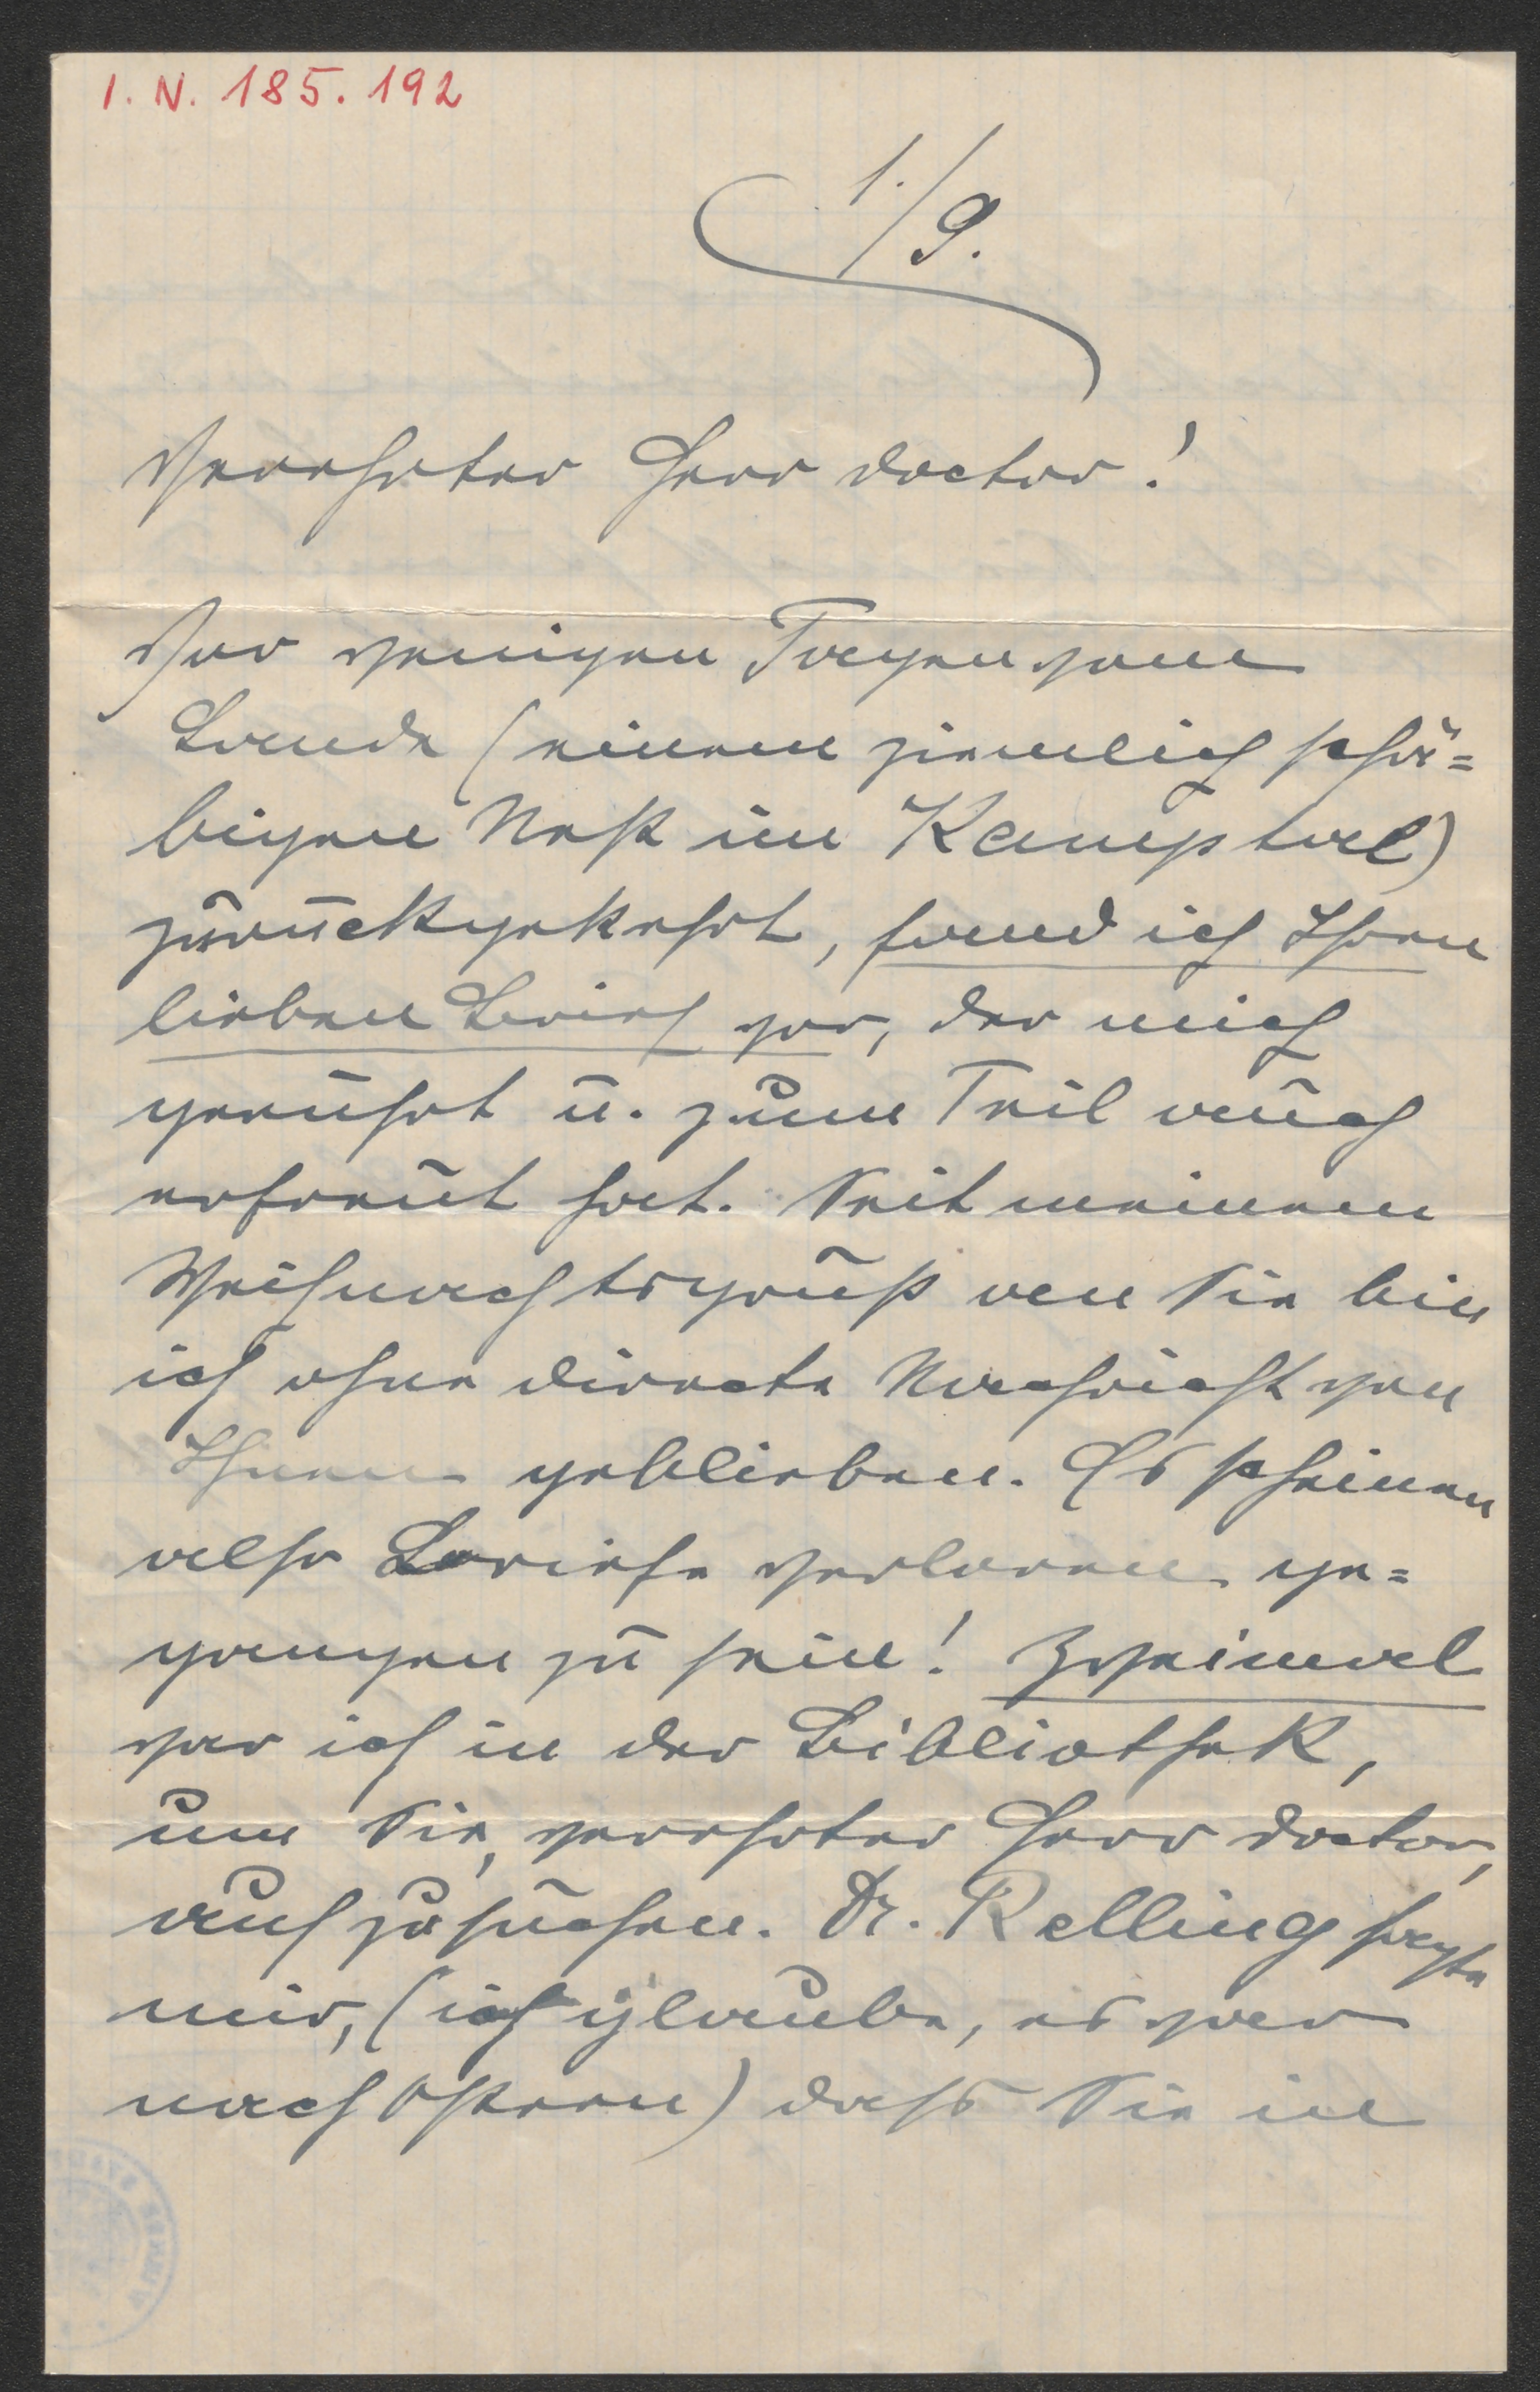 I. N. 185.192
1./9.
Verehrter Herr Doctor!
Vor wenigen Tagen vom
Lande (einem ziemlich schä=
bigen Nest im Kamptal)
zurückgekehrt, fand ich Ihren
lieben Brief vor, der mich
gerührt u. zum Teil auch
erfreut hat. Seit meinem
Weihnachtsgruß an Sie bin
ich ohne directe Nachricht von
Ihnen geblieben. Es scheinen
also Briefe verloren ge=
gangen zu sein! Zweimal
war ich in der Bibliothek,
um Sie, verehrter Herr Doctor,
aufzusuchen. Dr. Relling sagte
mir, (ich glaube, es war
nach Ostern) dass Sie in